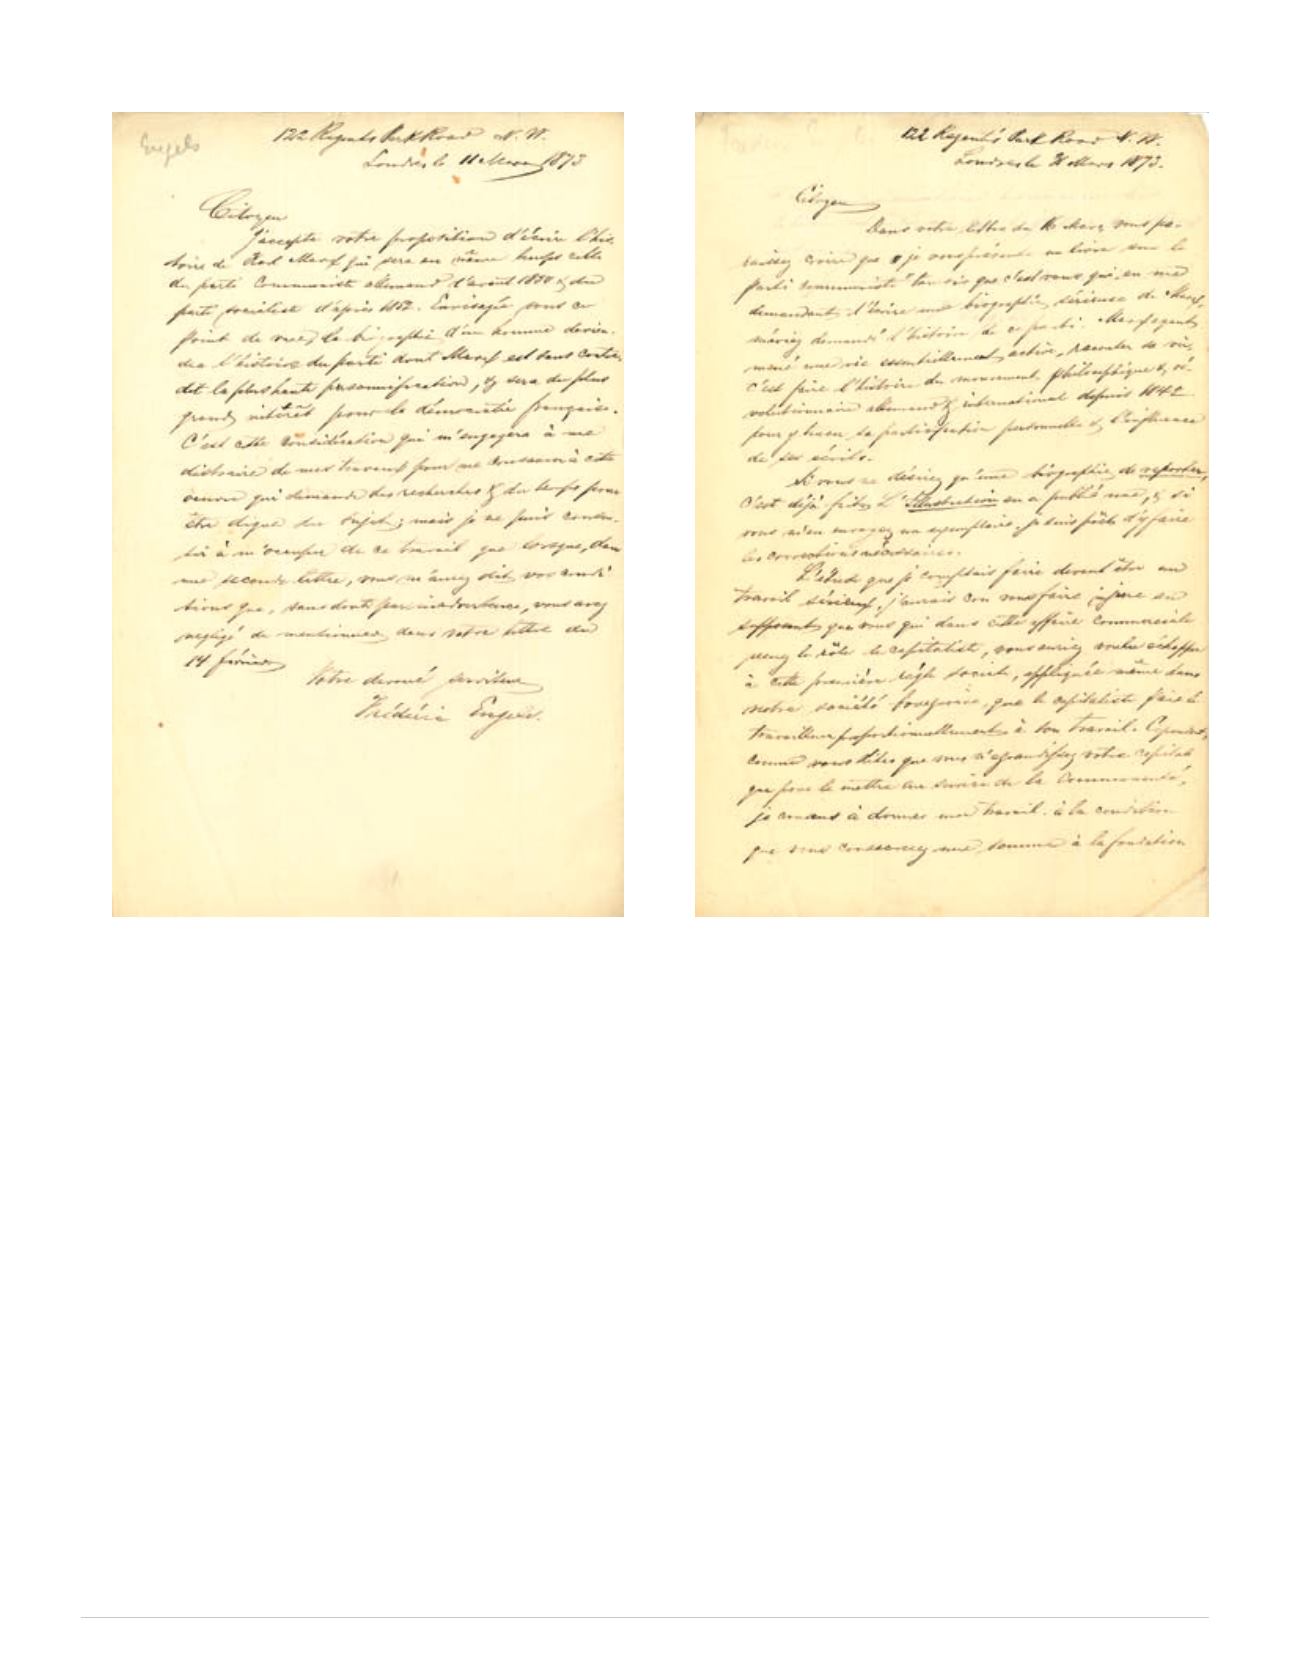 Engels
122 Regents Park Road N. W.
Londres le 11 Mars 1873
Citoyen
J'accepte votre proposition d'écrire l'his-
toire de Karl Marx qui sera en même temps celle
du parti Communiste allemand avant 1850 & du
parti socialiste d'après 1852. Envisagée sous ce
point de vue, la biographie d'un homme devien-
dra l'histoire du parti dont Marx est sans contre-
dit la plus haute personnification, & sera du plus
grand intérêt pour la démocratie française.
C'est cette considération qui m'engagera à me
distraire de mes travaux pour me consacrer à cette
oeuvre qui demande des recherches & du temps pour
être digne du sujet; mais je ne puis consen-
tir à m'occuper de ce travail que lorsque, dans
une seconde lettre, vous m'aurez dit vos condi-
tions que, sans doute par inadvertence, vous avez
négligé de mentionner dans votre lettre du
14 février
Votre dévoué serviteur
Frédéric Engels.
122 Regent's Park Road N. W.
Londres le Mars 1873.
Citoyen
Dans votre lettre du 16 Mars vous pa-
raissez croire que je vous présente un livre sur le
parti communiste tandis que c'est vous qui, en me
demandant d'écrire une biographie sérieuse de Marx,
m'aviez demandé l'histoire de ce parti. Marx ayant
mené une vie essentiellement active, raconter sa vie,
c'est faire l'histoire du mouvement philosophique & ré-
volutionnaire allemand & international depuis 1842
pour y tracer sa participation personnelle & l'influence
de ses écrits.
Si vous ne désirez qu'une biographie de reporter,
c'est déjà fait. L'Illustration en a publié une, & si
vous m'en envoyez un exemplaire, je suis prêt d'y faire
les corrections nécessaires.
L'étude que je comptais faire devant être un
travail sérieux, j'aurais cru vous faire injure en
supposant que vous qui dans cette affaire commerciale
jouez le rôle de capitaliste, vous auriez voulu échapper
à cette première règle sociale, appliquée même dans
notre société bourgeoise, que le capitaliste paie le
travailleur proportionnellement à son travail. Cependant,
comme vous dites que vous n'agrandissez votre capital
que pour le mettre au service de la Communauté,
je consens à donner mon travail à la condition
que vous consacrerez une somme à la fondation